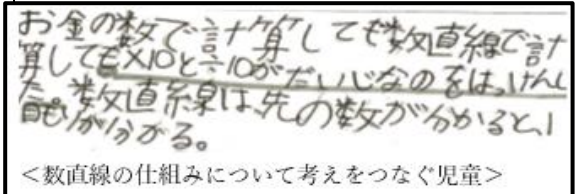 お金の数で計算しても数直線で計
算しても×10と÷10がだいじなのをはっけんし
た。数直線は、先の数が分かると、1
目もりが分かる。
<数直線の仕組みについて考えをつなぐ児童>